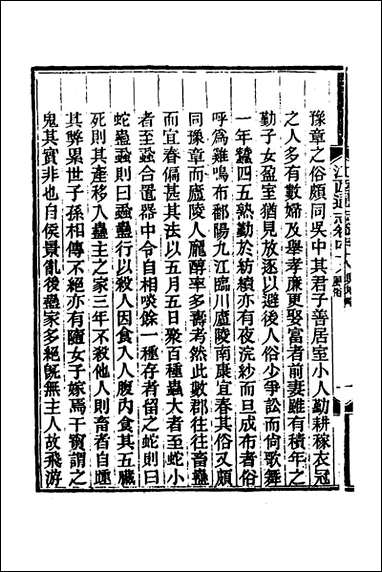 豫章之俗頗同吳中其君子善居室小人勤耕稼衣冠
之人多有數婦及舉孝廉更娶富者前妻雖有積年之
勤子女盈室猶見放逐以避後人俗少爭訟而尚歌舞
一年蠶四五熟勤於紡績亦有夜浣紗而旦成布者俗
呼爲雞鳴布鄱陽九江臨川廬陵南康宜春其俗又頗
同豫章而廬陵人厖醇率多壽考然此數郡往往畜蠱
而宜春偏甚其法以五月五日聚百種蟲大者至蛇小
者至蝨合置器中令自相啖餘一種存者留之蛇則曰
蛇蠱蝨則曰蝨蠱行以殺人因食入人腹內食其五臟
死則其產移入蠱主之家三年不殺他人則畜者自踵
其弊累世子孫相傳不絕亦有隨女子嫁焉干寶謂之
鬼其實非也自侯景亂後蠱家多絕旣無主人故飛游